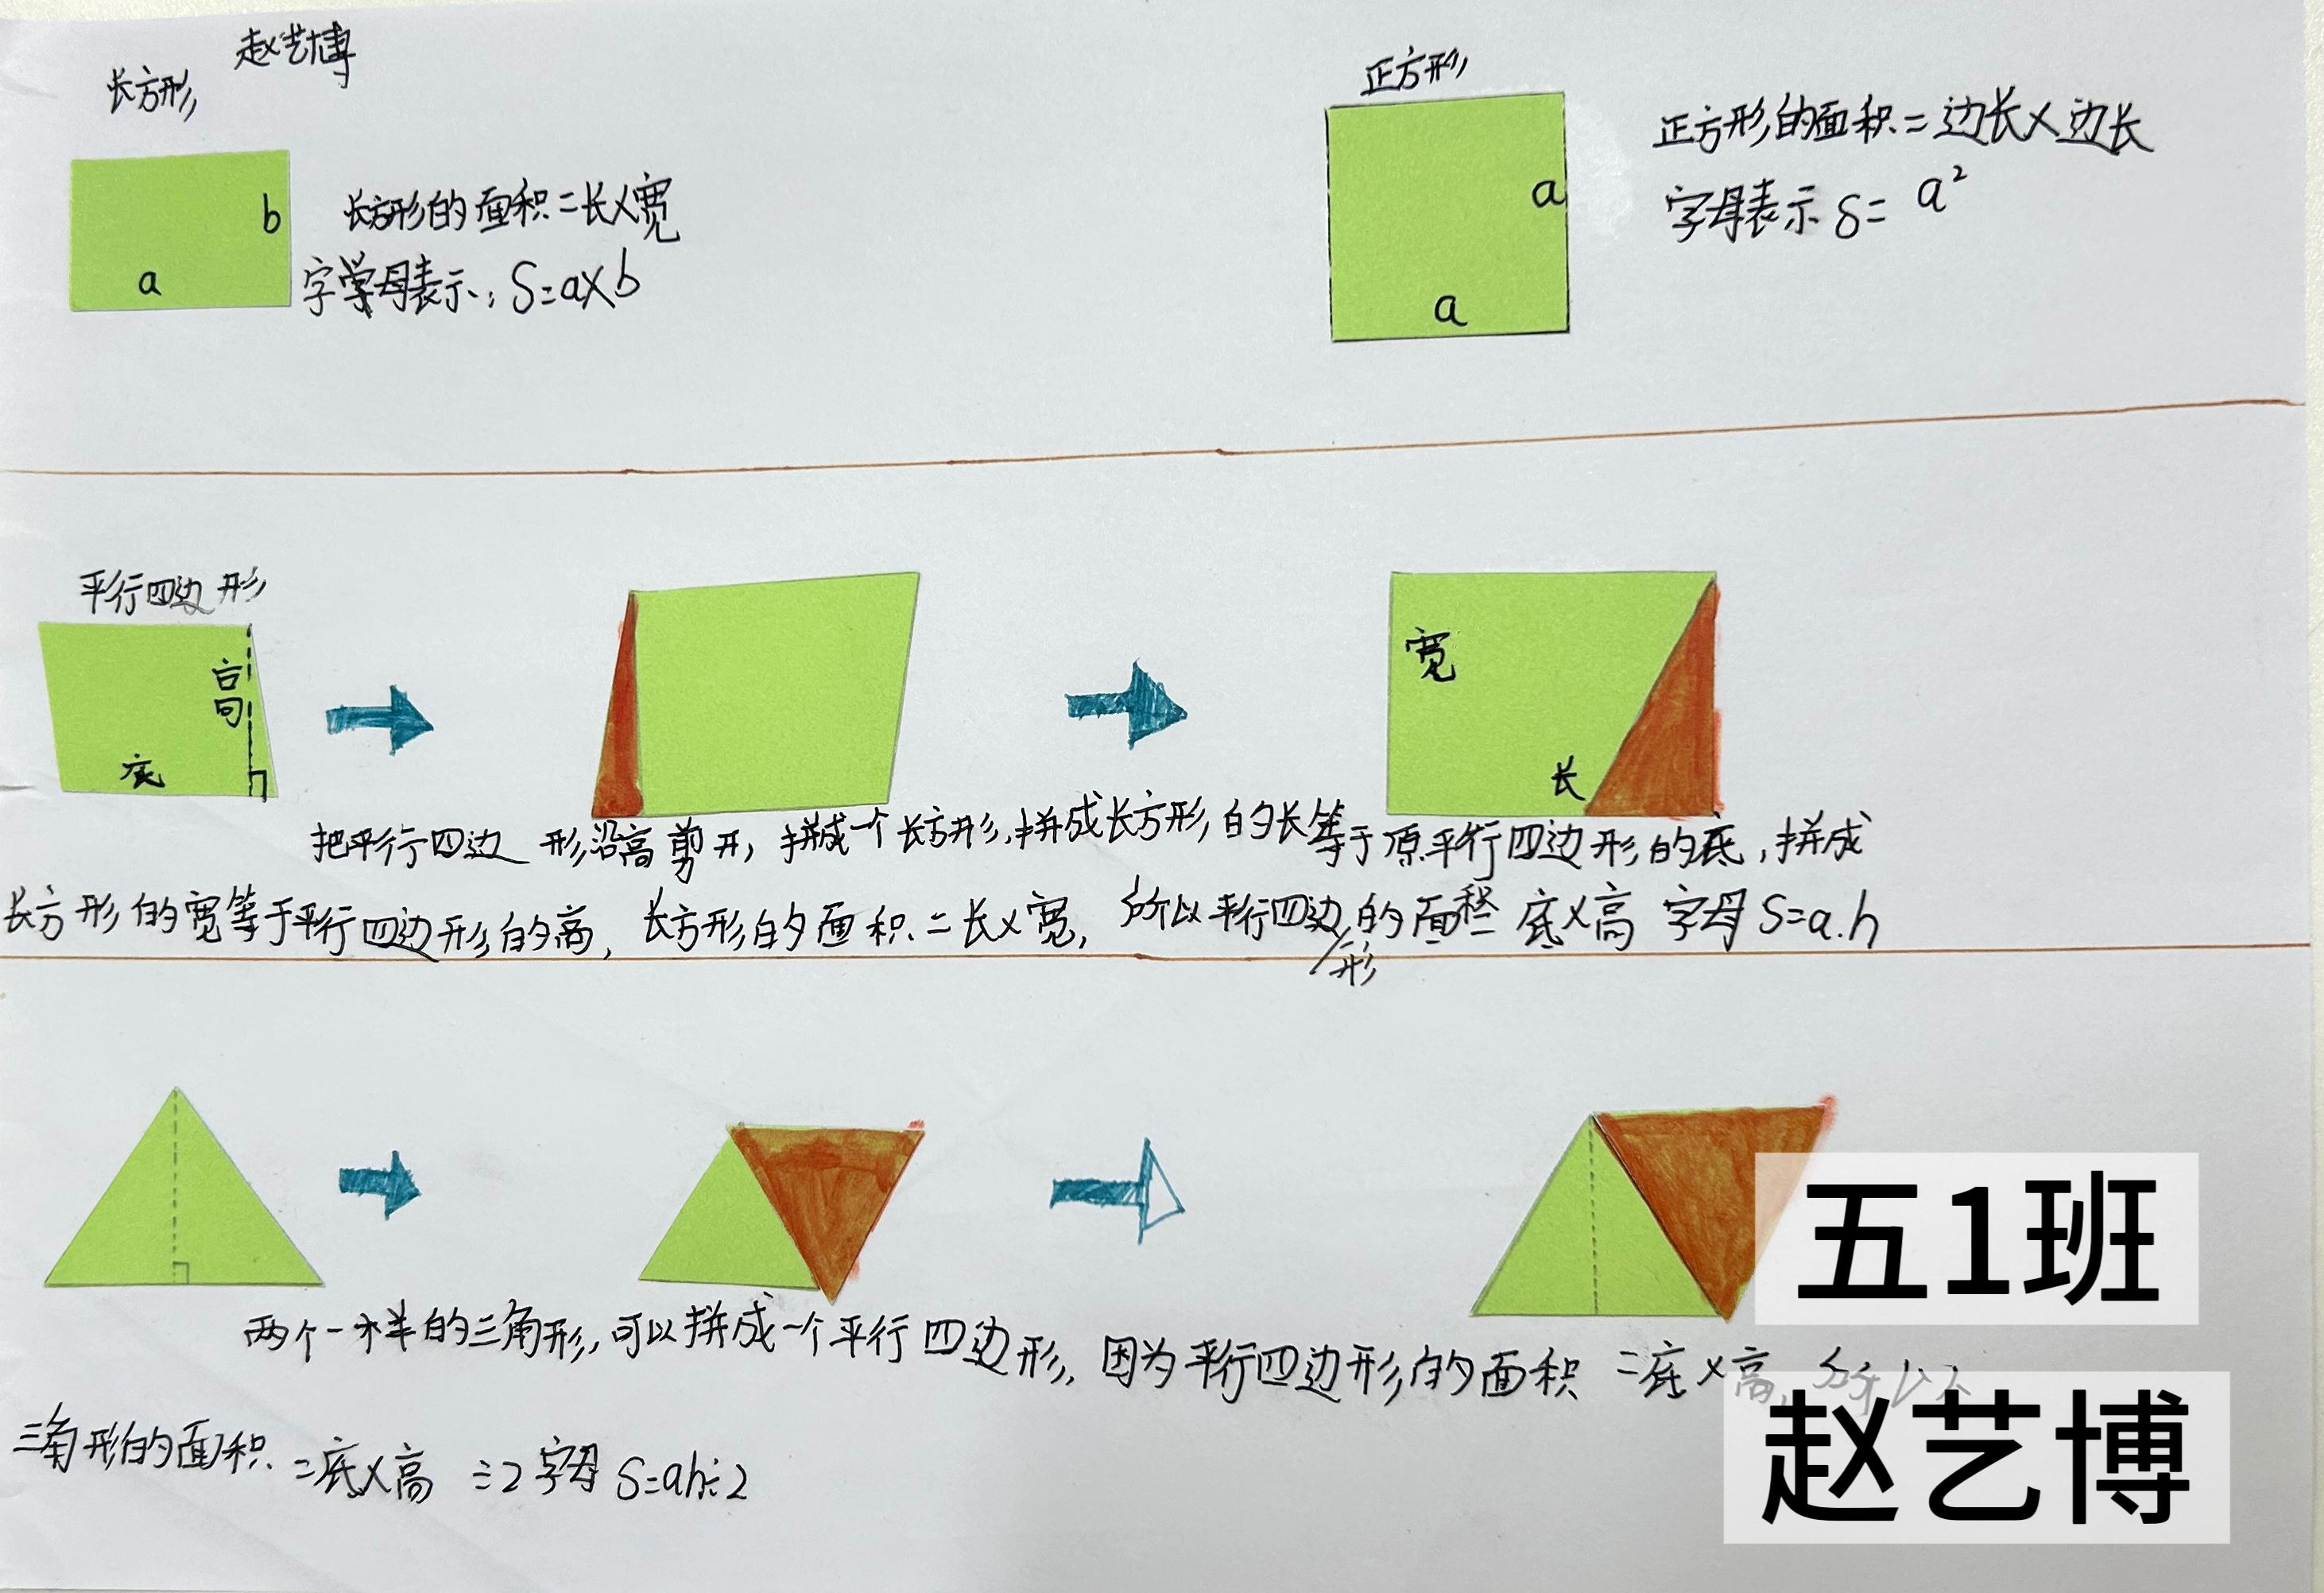 赵艺博
长方形
b
a
长方形的面积=长×宽
字母表示:S=a×b
正方形
a
a
正方形的面积=边长×边长
字母表示S=a²
平行四边形
高
底
宽
长
把平行四边形沿高剪开,拼成一个长方形,拼成长方形的长等于原平行四边形的底,拼成
长方形的宽等于平行四边形的高,长方形的面积=长×宽,所以平行四边形的面积=底×高 字母S=a.h
两个一样的三角形,可以拼成一个平行四边形,因为平行四边形的面积=底×高,所以
三角形的面积=底×高÷2 字母S=ah÷2
五1班
赵艺博